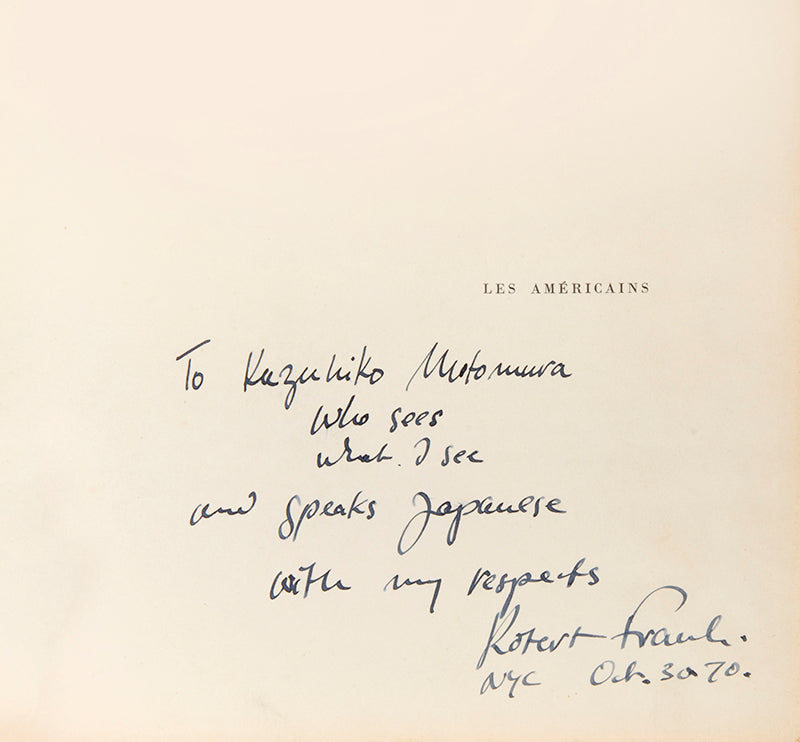 LES AMÉRICAINS
To Kazuhiko Motomura
who sees
what I see
and speaks Japanese
with my respects
Robert Frank.
NYC Oct. 30 70.